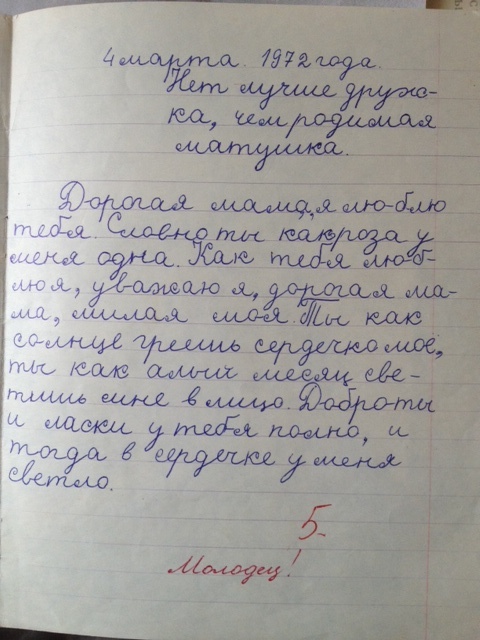 4 марта. 1972 года.
Нет лучше друж-
ка, чем родимая
матушка.
Дорогая мама, я лю-блю
тебя. Словно ты как роза у
меня одна. Как тебя люб-
лю я, уважаю я, дорогая ма-
ма, милая моя. Ты как
солнце греешь сердечко моё,
ты как алый месяц све-
тишь мне в лицо. Доброты
и ласки у тебя полно, и
тогда в сердечке у меня
светло.
5-
Молодец!